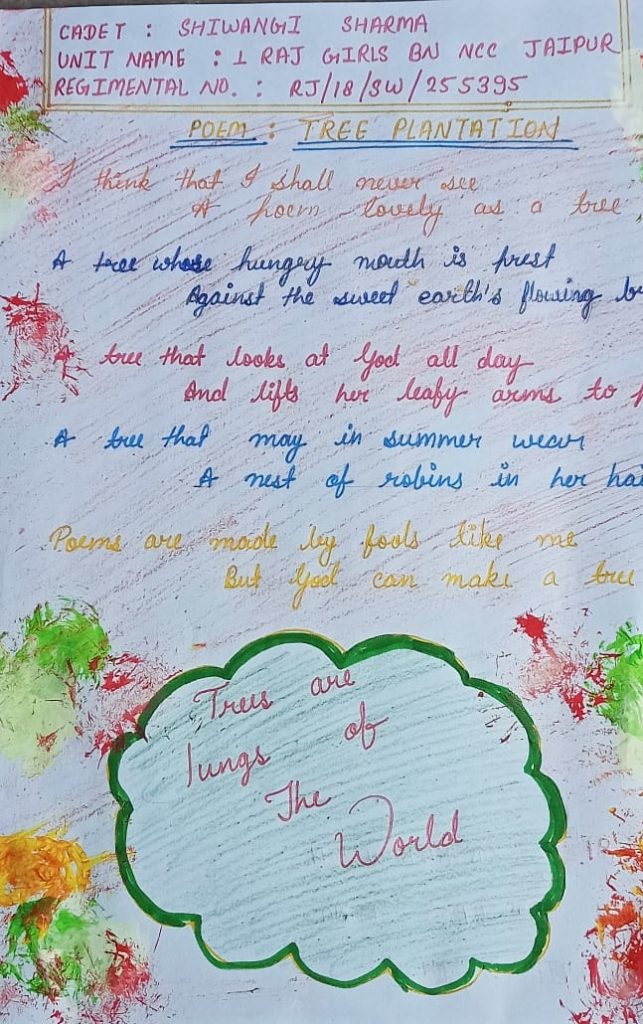 CADET : SHIWANGI SHARMA
UNIT NAME : 1 RAJ GIRLS BN NCC JAIPUR
REGIMENTAL NO. : RJ/18/SW/255395
POEM : TREE PLANTATION
I think that I shall never see
A poem lovely as a tree
A tree whose hungry mouth is prest
Against the sweet earth's flowing
A tree that looks at God all day
And lifts her leafy arms to
A tree that may in summer wear
A nest of robins in her
Poems are made by fools like me
But God can make a tree
Trees are
lungs of
The
World